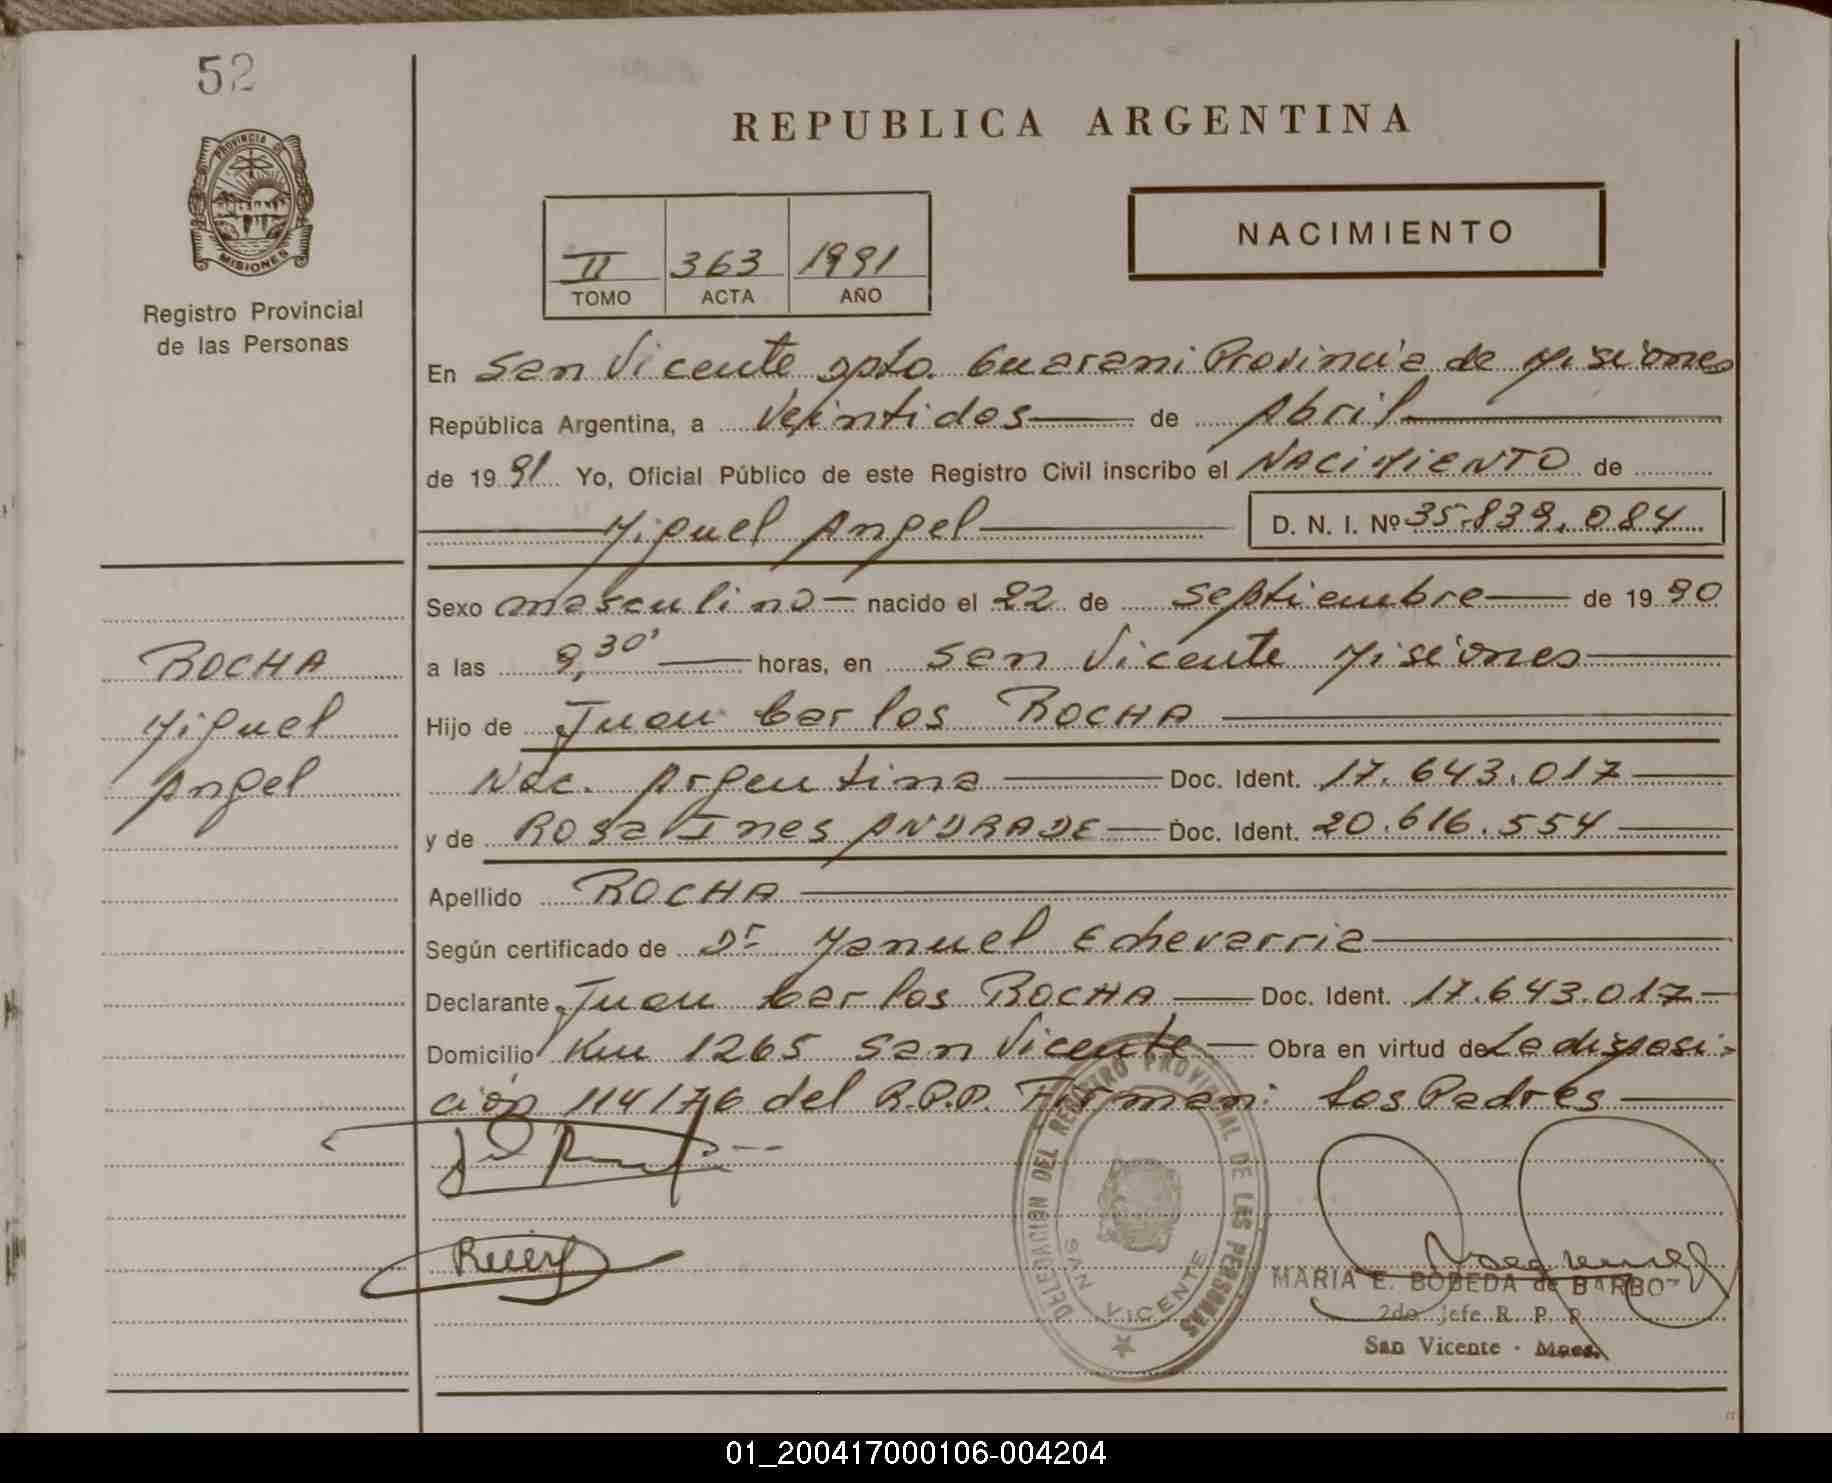 52
PROVINCIA DE
MISIONES
Registro Provincial
de las Personas
REPUBLICA ARGENTINA
NACIMIENTO
II 363 1991
TOMO ACTA AÑO
En San Vicente Dpto. Guarani Provincia de Misiones
República Argentina, a Veintidos de Abril
de 1991 Yo, Oficial Público de este Registro Civil inscribo el NACIMIENTO de
Miguel Angel D. N. I. Nº 35.839.084
Sexo masculino nacido el 22 de Septiembre de 1990
a las 9,30' horas, en San Vicente Misiones
Hijo de Juan Carlos ROCHA
Nac. Argentina Doc. Ident. 17.643.017
y de Rosa Ines ANDRADE Doc. Ident. 20.616.554
Apellido ROCHA
Según certificado de Dr Manuel Echevarria
Declarante Juan Carlos ROCHA Doc. Ident. 17.643.017
Domicilio Km 1265 San Vicente Obra en virtud de La disposi-
ción 114/76 del R.P.P. Firman: Los Padres
ROCHA
Miguel
Angel
DELEGACION DEL REGISTRO PROVINCIAL DE LES PERSONAS
SAN VICENTE
MARIA E. BOBEDA de BARBO
2do Jefe R. P. P.
San Vicente - Mnes.
01_200417000106-004204